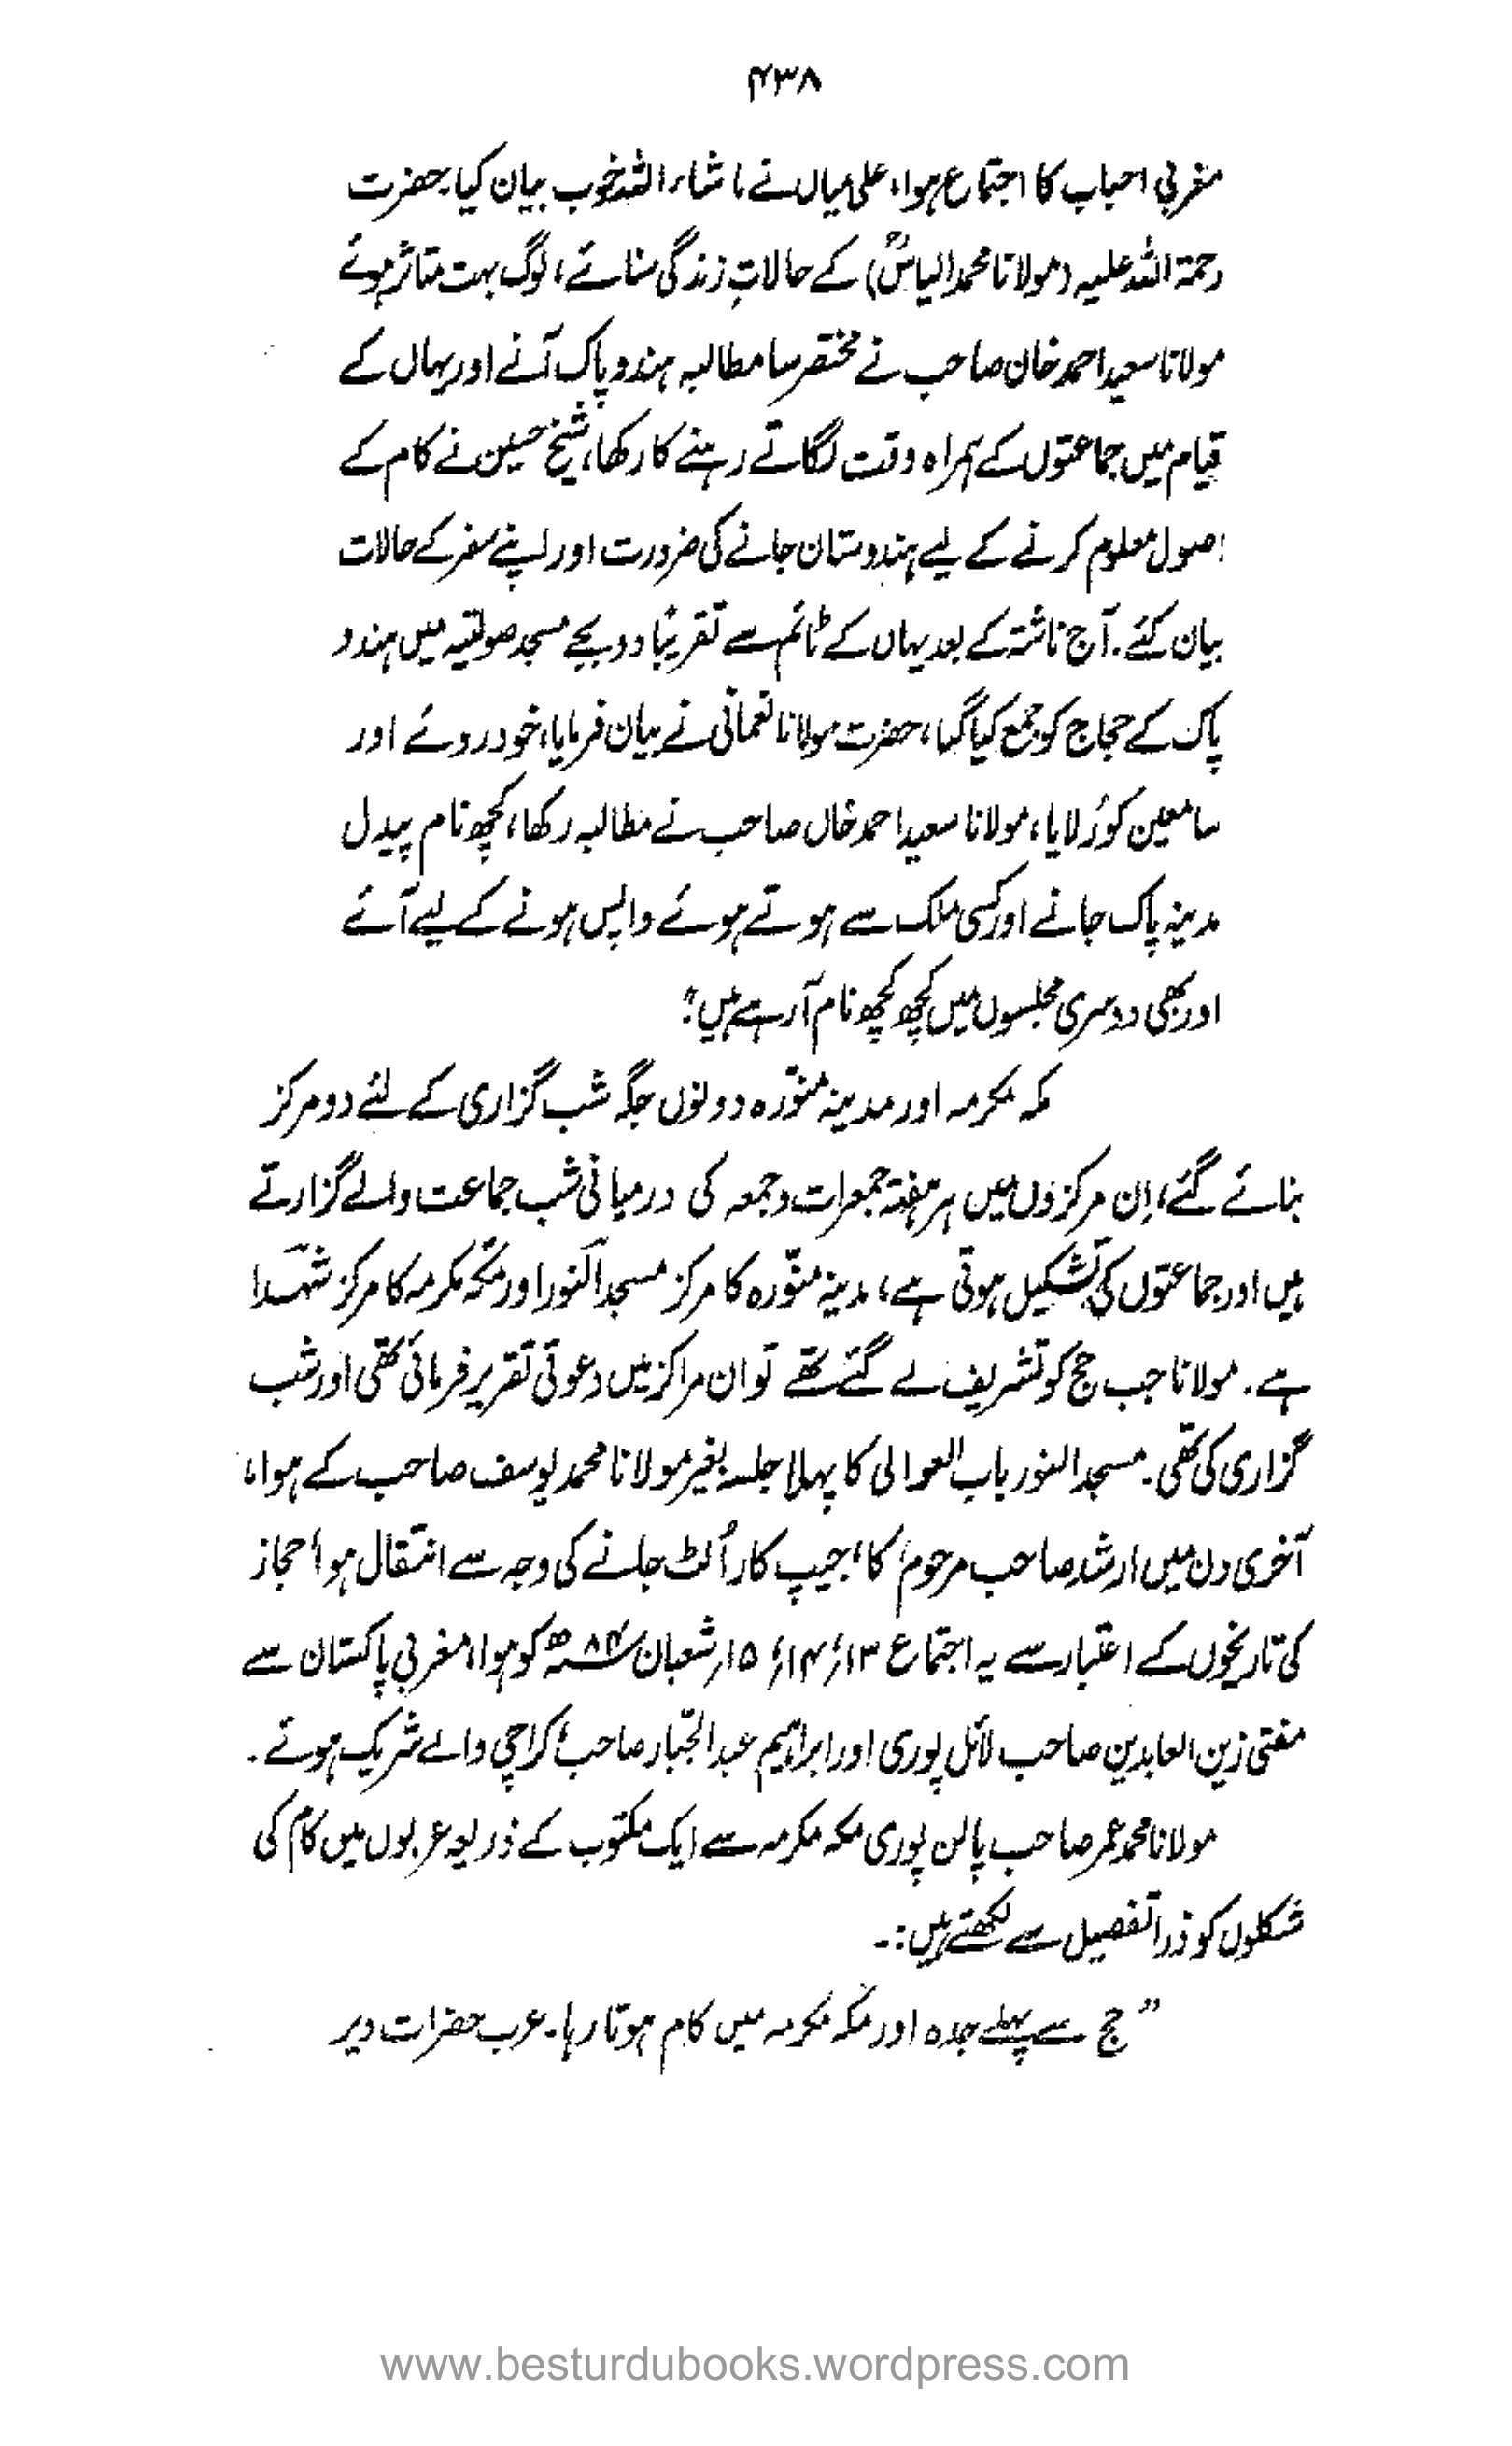 ۴۳۸
مغربی احباب کا اجتماع ہوا، علی میاں نے ماشاء اللہ خوب بیان کیا، حضرت
رحمۃ اللہ علیہ (مولانا محمد الیاسؒ) کے حالاتِ زندگی سنائے، لوگ بہت متاثر ہوئے
مولانا سعید احمد خان صاحب نے مختصر سا مطالبہ ہند و پاک آنے اور یہاں کے
قیام میں جماعتوں کے ہمراہ وقت لگاتے رہنے کا رکھا، شیخ حسین نے کام کے
اصول معلوم کرنے کے لیے ہندوستان جانے کی ضرورت اور اپنے سفر کے حالات
بیان کئے. آج ناشتہ کے بعد یہاں کے ٹائم سے تقریبًا دو بجے مسجد صولتیہ میں ہند و
پاک کے حجاج کو جمع کیا گیا، حضرت مولانا نعمانی نے بیان فرمایا، خود روئے اور
سامعین کو رُلایا، مولانا سعید احمد خاں صاحب نے مطالبہ رکھا، کچھ نام پیدل
مدینہ پاک جانے اور کسی ملک سے ہوتے ہوئے واپس ہونے کے لیے آئے
اور بھی دوسری مجلسوں میں کچھ کچھ نام آرہے ہیں"؛
مکہ مکرمہ اور مدینہ منوّرہ دونوں جگہ شب گزاری کے لئے دو مرکز
بنائے گئے، اِن مرکزوں میں ہر ہفتہ جمعرات و جمعہ کی درمیانی شب جماعت والے گزارتے
ہیں اور جماعتوں کی تشکیل ہوتی ہے، مدینہ منوّرہ کا مرکز مسجد النور اور مکّہ مکرمہ کا مرکز شہدا
ہے. مولانا جب حج کو تشریف لے گئے تھے تو ان مراکز میں دعوتی تقریر فرمائی تھی اور شب
گزاری کی تھی. مسجد النور باب العوالی کا پہلا جلسہ بغیر مولانا محمد یوسف صاحب کے ہوا،
آخری دن میں ارشد صاحب مرحوم کا، جیپ کار اُلٹ جانے کی وجہ سے انتقال ہوا، حجاز
کی تاریخوں کے اعتبار سے یہ اجتماع ۱۳، ۱۴، ۱۵، شعبان ۸۴ھ کو ہوا، مغربی پاکستان سے
مفتی زین العابدین صاحب لائل پوری اور ابراہیم عبدالجبّار صاحب کراچی والے شریک ہوتے.
مولانا محمد عمر صاحب پالن پوری مکہ مکرمہ سے ایک مکتوب کے ذریعہ عربوں میں کام کی
شکلوں کو ذرا تفصیل سے لکھتے ہیں:۔
" حج سے پہلے جدہ اور مکّہ مکرمہ میں کام ہوتا رہا۔ عرب حضرات دیر
www.besturdubooks.wordpress.com